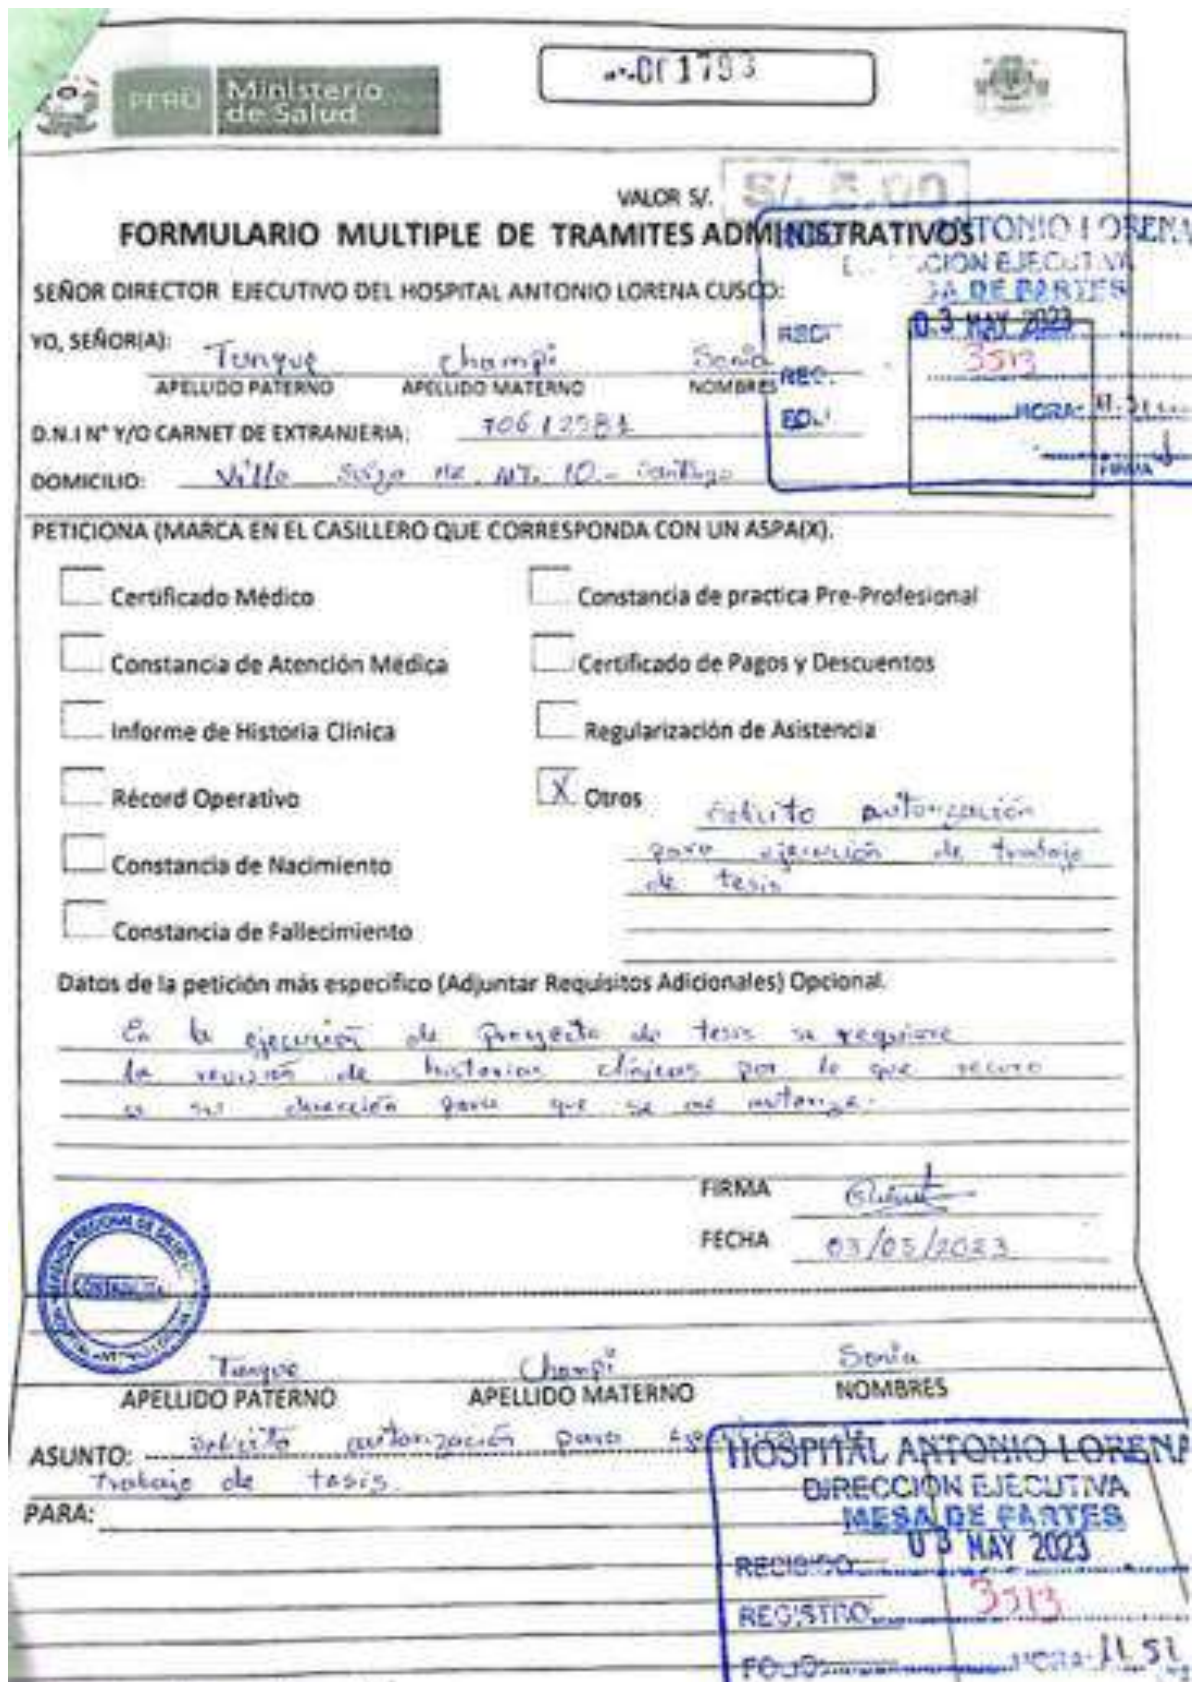 PERÚ Ministerio de Salud
001793
VALOR S/. S/. 5.00
FORMULARIO MULTIPLE DE TRAMITES ADMINISTRATIVOS
SEÑOR DIRECTOR EJECUTIVO DEL HOSPITAL ANTONIO LORENA CUSCO:
ANTONIO LORENA
MESA DE PARTES
03 MAY 2023
3513
HORA:
FIRMA
YO, SEÑOR(A): Tunque Champi Sonia
APELLIDO PATERNO APELLIDO MATERNO NOMBRES
D.N.I N° Y/O CARNET DE EXTRANJERIA:
DOMICILIO: Villa 10 - Santiago
PETICIONA (MARCA EN EL CASILLERO QUE CORRESPONDA CON UN ASPA(X).
Certificado Médico
Constancia de Atención Médica
Informe de Historia Clínica
Récord Operativo
Constancia de Nacimiento
Constancia de Fallecimiento
Constancia de practica Pre-Profesional
Certificado de Pagos y Descuentos
Regularización de Asistencia
X Otros solicito autorización
para ejecución de trabajo
de tesis
Datos de la petición más específico (Adjuntar Requisitos Adicionales) Opcional.
En la ejecución de proyecto de tesis se requiere
la revisión de historias clínicas por lo que recurro
a su dirección para que se me autorize.
FIRMA
FECHA 03/05/2023
GERENCIA REGIONAL DE SALUD
CONTABILIDAD
Tunque Champi Sonia
APELLIDO PATERNO APELLIDO MATERNO NOMBRES
ASUNTO: Solicito autorización para
Trabajo de tesis.
PARA:
HOSPITAL ANTONIO LORENA
DIRECCIÓN EJECUTIVA
MESA DE PARTES
03 MAY 2023
RECIBIDO
REGISTRO 3513
FOLIO HORA 11 51